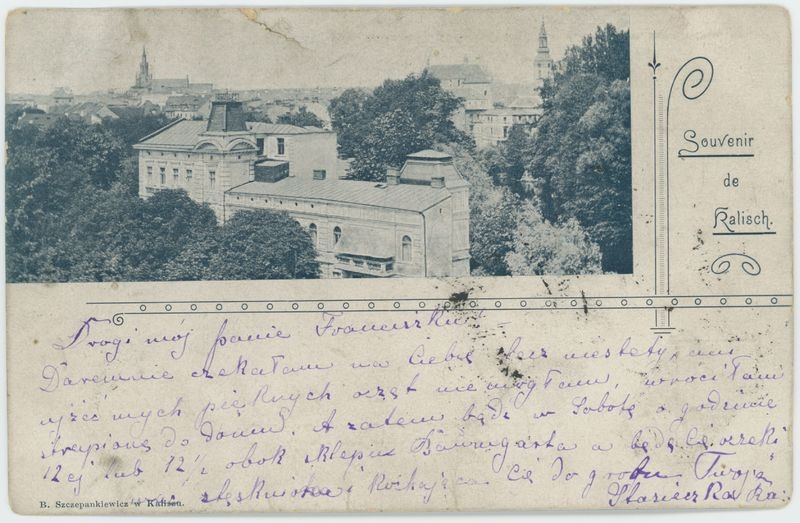 Souvenir
de
Kalisch.
Drogi moj panie Franciszku!
Daremnie czekałam na Ciebie lecz niestety ani
ujźeć mych pięknych ocząt nie mogłam, wrociłam
strapioną do domu. A zatem bądz w Sobotę o godzinie
12ej lub 12½ obok sklepu Baumgarta a będę Cię oczeki
stęskniona i Kochająca Cię do grobu Twoja
Starieczka
B. Szczepankiewicz w Kaliszu.